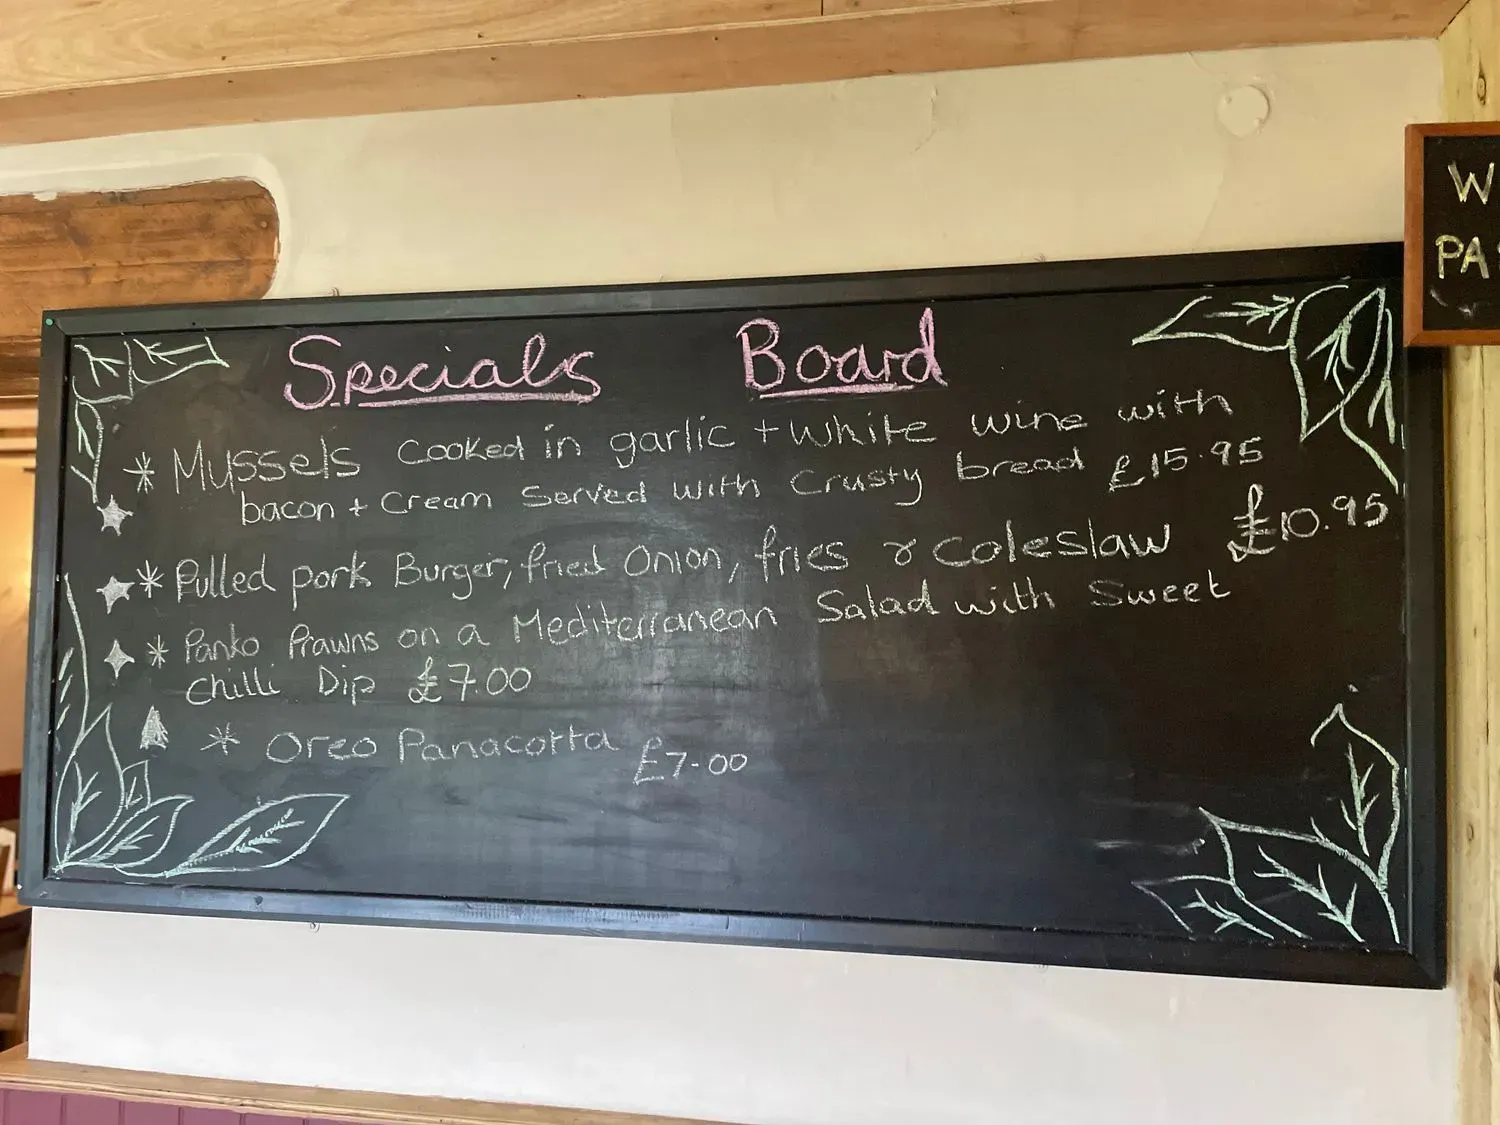 Specials Board
* Mussels cooked in garlic + white wine with
bacon + cream served with crusty bread £15.95
* Pulled pork Burger, fried onion, fries & coleslaw £10.95
* Panko Prawns on a Mediterranean Salad with Sweet
Chilli Dip £7.00
* Oreo Panacotta £7.00
W
PA